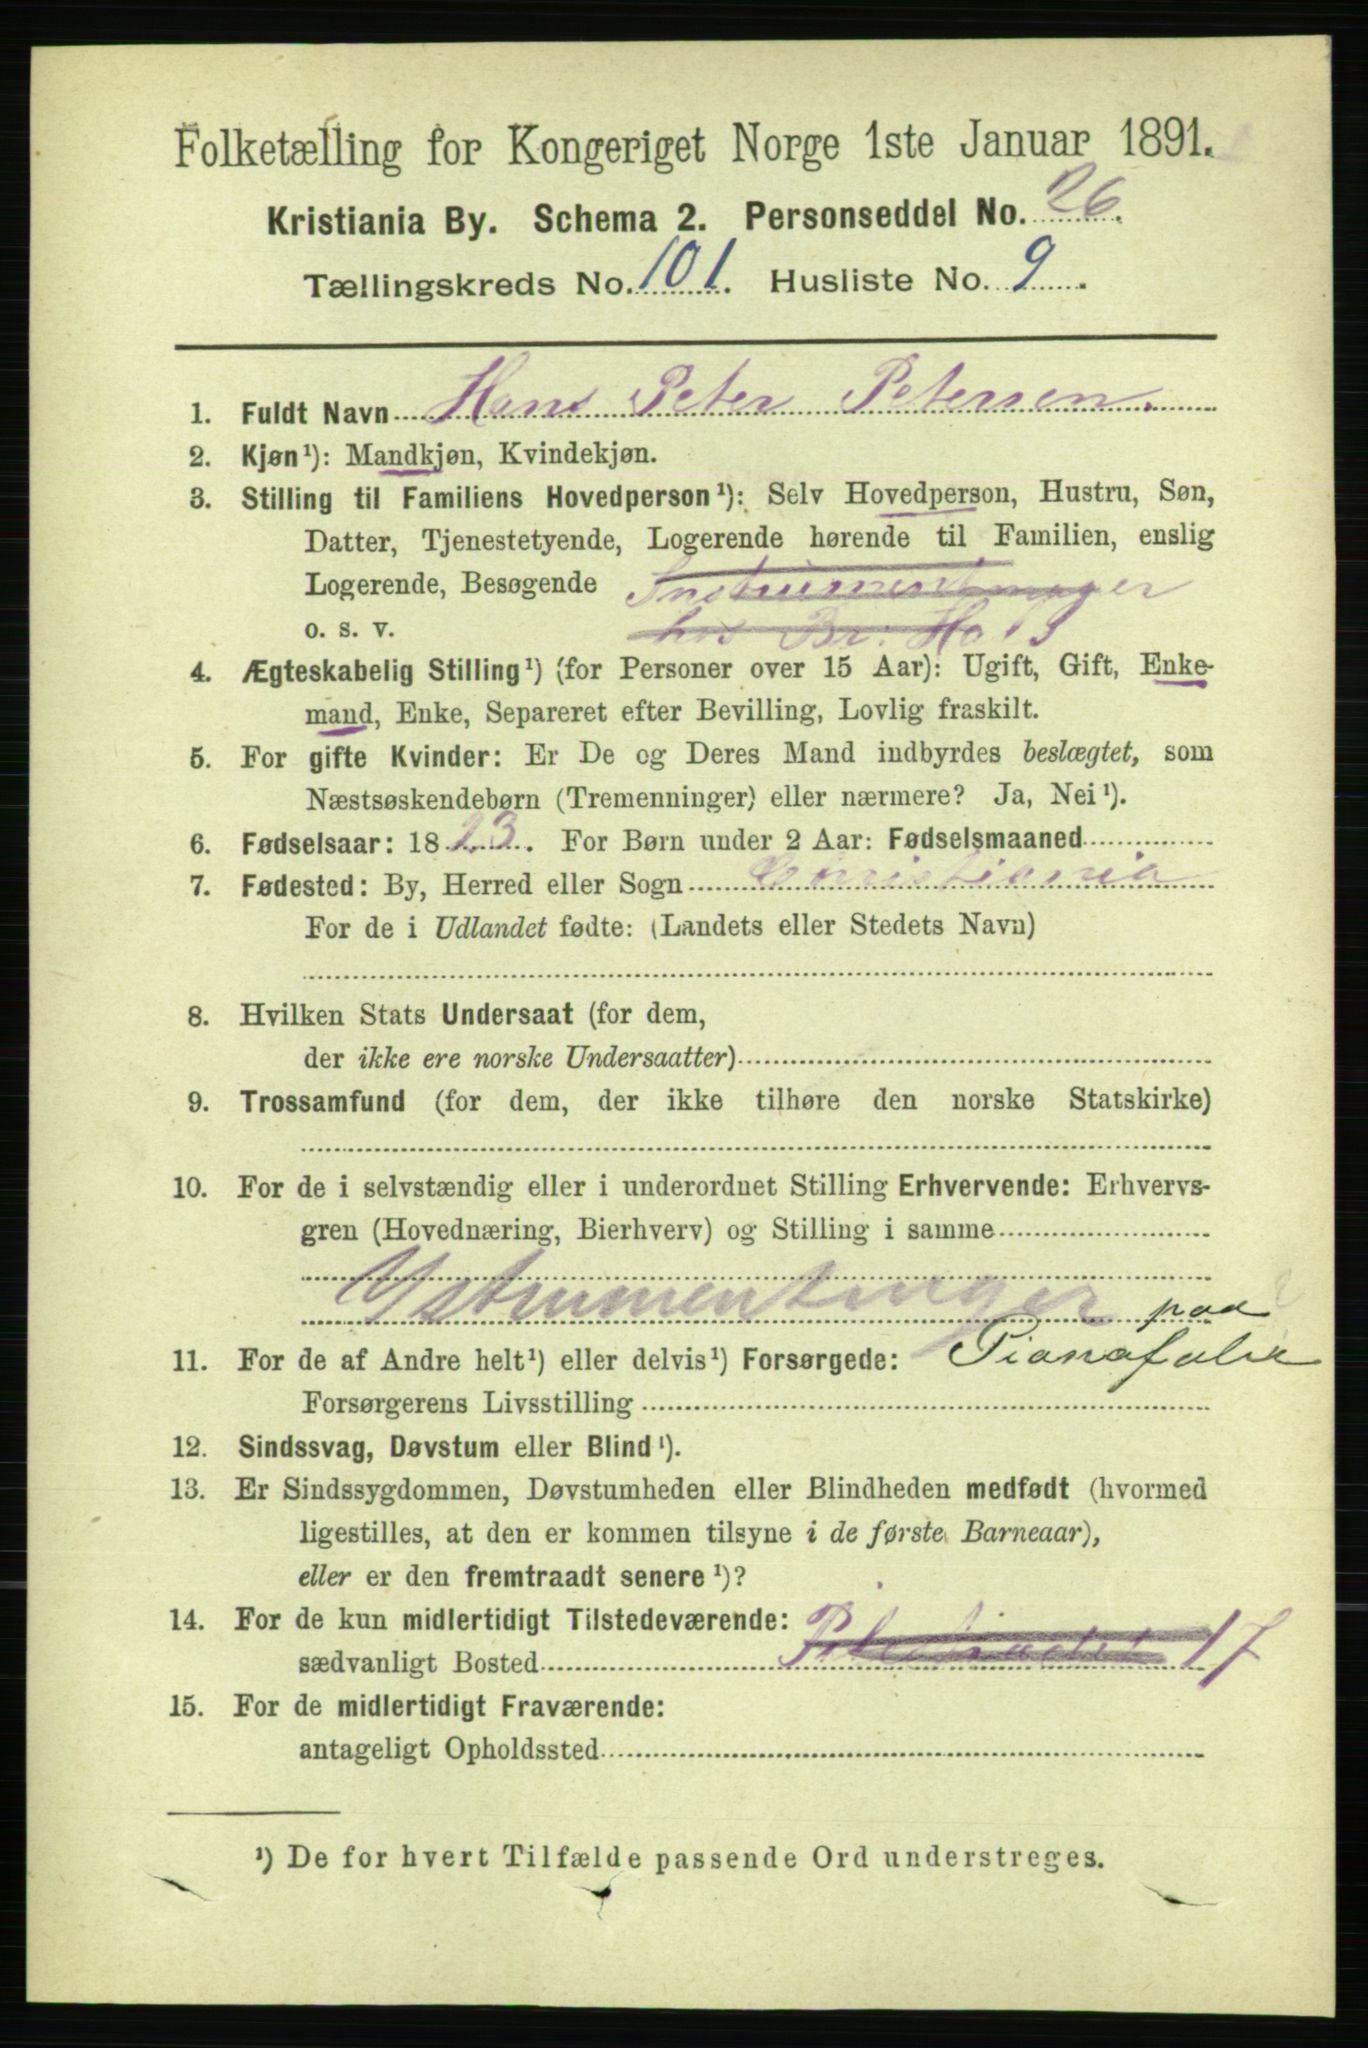 Folketælling for Kongeriget Norge 1ste Januar 1891.
Kristiania By. Schema 2. Personseddel No. 26.
Tællingskreds No. 101. Husliste No. 9.
1. Fuldt Navn Hans Peter Petersen.
2. Kjøn¹): Mandkjøn, Kvindekjøn.
3. Stilling til Familiens Hovedperson¹): Selv Hovedperson, Hustru, Søn,
Datter, Tjenestetyende, Logerende hørende til Familien, enslig
Logerende, Besøgende Instrumentmager
o. s. v. hos Br. Hals
4. Ægteskabelig Stilling¹) (for Personer over 15 Aar): Ugift, Gift, Enke-
mand, Enke, Separeret efter Bevilling, Lovlig fraskilt.
5. For gifte Kvinder: Er De og Deres Mand indbyrdes beslægtet, som
Næstsøskendebørn (Tremenninger) eller nærmere? Ja, Nei¹).
6. Fødselsaar: 1823. For Børn under 2 Aar: Fødselsmaaned
7. Fødested: By, Herred eller Sogn Christiania
For de i Udlandet fødte: (Landets eller Stedets Navn)
8. Hvilken Stats Undersaat (for dem,
der ikke ere norske Undersaatter)
9. Trossamfund (for dem, der ikke tilhøre den norske Statskirke)
10. For de i selvstændig eller i underordnet Stilling Erhvervende: Erhvervs-
gren (Hovednæring, Bierhverv) og Stilling i samme
paa
11. For de af Andre helt¹) eller delvis¹) Forsørgede: Pianofabr
Forsørgerens Livsstilling
12. Sindssvag, Døvstum eller Blind¹).
13. Er Sindssygdommen, Døvstumheden eller Blindheden medfødt (hvormed
ligestilles, at den er kommen tilsyne i de første Barneaar),
eller er den fremtraadt senere¹)?
14. For de kun midlertidigt Tilstedeværende:
sædvanligt Bosted Pilestrædet 17
15. For de midlertidigt Fraværende:
antageligt Opholdssted
¹) De for hvert Tilfælde passende Ord understreges.